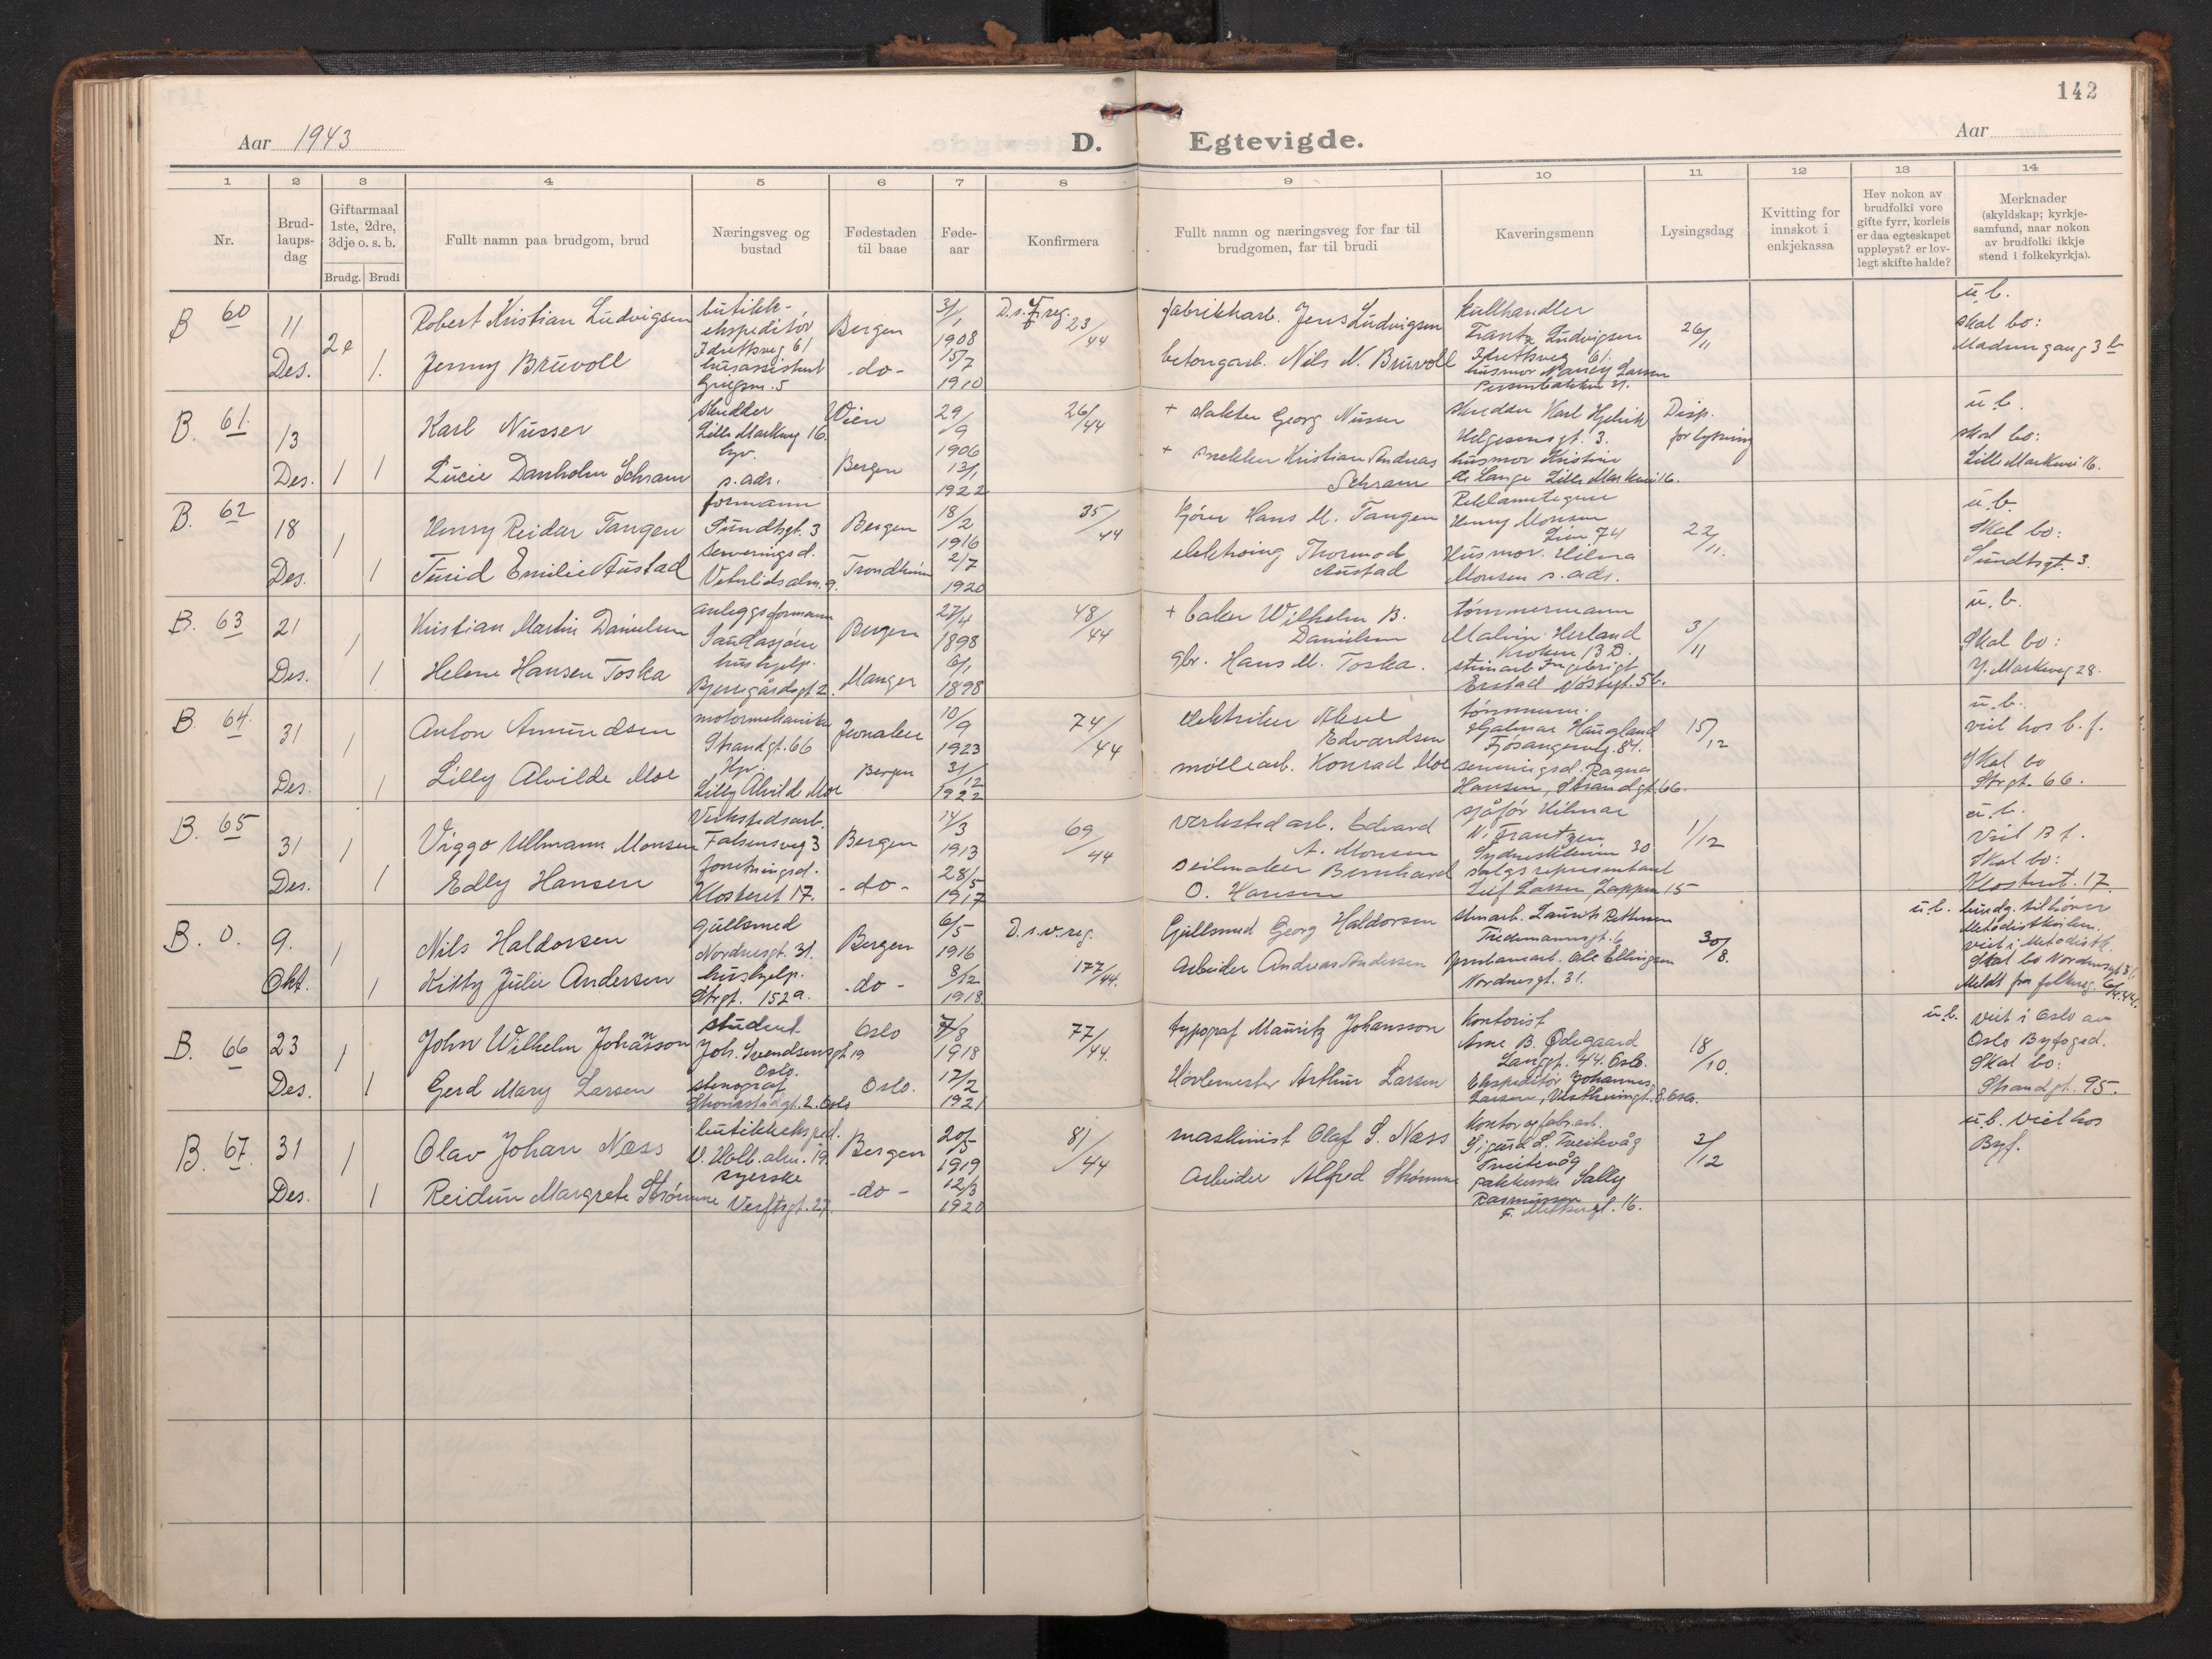 142
Aar 1943
D. Egtevigde.
Aar
1 2 3 4 5 6 7 8 9 10 11 12 13 14
Nr.
Brud-
laups-
dag
Giftarmaal
1ste, 2dre,
3dje o. s. b.
Brudg. Brudi
Fullt namn paa brudgom, brud
Næringsveg og
bustad
Fødestaden
til baae
Føde-
aar
Konfirmera
Fullt namn og næringsveg for far til
brudgomen, far til brudi
Kaveringsmenn
Lysingsdag
Kvitting for
innskot i
enkjekassa
Hev nokon av
brudfolki vore
gifte fyrr, korleis
er daa egteskapet
uppløyst? er lov-
legt skifte halde?
Merknader
(skyldskap; kyrkje-
samfund, naar nokon
av brudfolki ikkje
stend i folkekyrkja).
B 60
11
Des.
2e
1.
Robert Kristian Ludvigsen
Jenny Bruvoll
butikk-
ekspeditör
Idrettsveg 61
husassistent
Griegsm. 5
Bergen
-do-
3/1
1908
15/7
1910
23/44
fabrikkarb. Jens Ludvigsen
betongarb. Nils N. Bruvoll
kullhandler
Frantz Ludvigsen
Idrettsveg 61.
husmor Nancy Larsen
26/11
u.b.
skal bo:
B. 61.
13
Des.
1 1
Karl Nusser
Lucie Danholm Schram
Lille Markveg 16.
hjv.
s.adr.
Wien
Bergen
29/9
1906
13/1
1922
26/44
+ Georg Nusser
+ snekker Kristian Andreas
Schram
Helgesensgt. 3.
husmor Kristine
de Lange Lille Markvei 16.
Disp.
for lysning
u.b.
skal bo:
Lille Markvei 16.
B. 62
18
Des.
1
1
Henry Reidar Tangen
Turid Emilie Austad
formann
Sundtsgt. 3
serveringsd.
Bergen
Trondheim
18/2
1916
2/7
1920
35/44
kjörer Hans M. Tangen
Thormod
Austad
Reklametegner
Henry Monsen
Lien 74
Husmor. Hilma
Monsen s.adr.
22/11.
u.b.
Skal bo:
Sundtsgt. 3.
B. 63
21
Des.
1
1
Kristian Martin Danielsen
Helene Hansen Toska
anleggsformann
Saudasjöen
hushjelp.
Bjerregårdsgt 2.
Bergen
Manger
27/4
1898
6/1
1898
48/44
+ baker Wilhelm B.
Danielsen
gbr. Hans M. Toska.
tömmermann
Malvin Herland
Kroken 13 B.
steinarb. Ingebrigt
Erstad Nöstegt. 56.
3/11
u.b.
Skal bo:
Y. Markveg 28.
B 64.
31
Des.
1
1
Anton Amundsen
Lilly Alvilde Moe
motormekaniker
Strandgt. 66
Hjv.
Lilly Alvilde Moe
Jevnaker
Bergen
10/9
1923
31/12
1922
74/44
elektriker Aksel
Edvardsen
möllearb. Konrad Moe
tömmerm.
Hjalmar Haugland
Fjösangerveg. 84.
serveringsd. Ragna
Hansen, Strandgt. 66.
15/12
u.b.
viel hos b.f.
Skal bo
Strgt. 66.
B. 65
31
Des.
1
1
Viggo Ullmann Monsen
Edly Hansen
Verkstedsarb.
Falsensveg 3
forretningsd.
Klosteret 17.
Bergen
-do-
14/3
1913
28/5
1917
69/44
verkstedarb. Edvard
A. Monsen
seilmaker Bernhard
O. Hansen
sjåför Hilmar
N. Frantzen
Sydneskleiven 30
salgsrepresentant
Leif Larsen, Lappen 15
1/12
u.b.
Viel B f.
Skal bo:
Klosteret. 17.
B. 0.
9.
Okt.
1
1
Nils Haldorsen
Kitty Julie Andersen
gullsmed
Nordnesgt. 31.
hushjelp.
Strgt. 152a.
Bergen
-do-
6/5
1916
8/12
1918
D.s.v.reg.
177/44.
Gullsmed Georg Haldorsen
Arbeider Andreas Andersen
Tidemannsgt. 6
jernbanearb. Ole Ellingsen
Nordnesgt. 31.
30/8.
u.b. brudg. tilhörer
Metodistkirken.
viet i Metodistk.
Skal bo Nordnesgt 31.
B. 66
23
Des.
1
1
John Wilhelm Johansson
Gerd Mary Larsen
student
Joh. Svendsensgt 19
Oslo.
stenograf
Oslo
Oslo.
7/8
1918
17/2
1921
77/44.
typograf Mauritz Johansson
Arthur Larsen
Kontorist
Arne B. Ødegaard
Langgt. 44. Oslo.
Ekspeditör Johannes
18/10.
u.b. viet i Oslo av
Oslo Byfoged.
Skal bo:
Strandgt. 95.
B. 67.
31
Des.
1
1
Olav Johan Næss
Reidun Margrete Strömme
butikkeksped.
V. Holb. alm. 19.
syerske
Verftsgt. 27.
Bergen
-do-
20/5
1919
12/3
1920
81/44
maskinist Olaf S. Næss
Arbeider Alfred Strömme
Kontor og fabr.arb.
Sigurd L. Tveitevåg
Tveitevåg
pakkerske Sally
Rasmussen
2/12
u.b. viel hos
Byf.